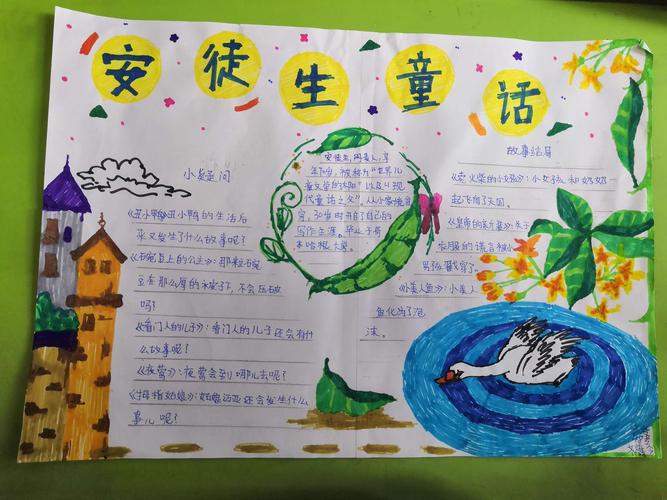 安徒生童话
小疑问
《丑小鸭》丑小鸭的生活后
来又发生了什么故事呢?
《豌豆上的公主》:那颗豌
豆在那么厚的被子下,不会压破
吗?
《看门人的儿子》:看门人的儿子还会有什
么故事呢?
《夜莺》:夜莺会到哪儿去呢?
《拇指姑娘》:姑娘
还会发生什么
事儿呢?
安徒生,丹麦人,享
年70岁,被称为“世界儿
童文学的太阳”以及“现
代童话之父”,从小家境贫
穷,30岁时开启了自己的
写作生涯。毕业于哥
本哈根大学。
故事结局
《卖火柴的小女孩》:小女孩和奶奶一
起飞向了天国。
《皇帝的新装》:关于
衣服的谎言被小
男孩戳穿了。
《小美人鱼》:小美人
鱼化为了泡
沫。